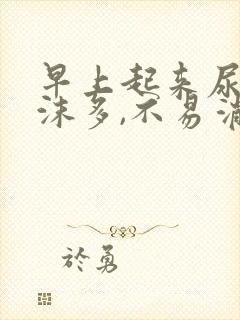 早上起来尿
沫多,不易消
於勇